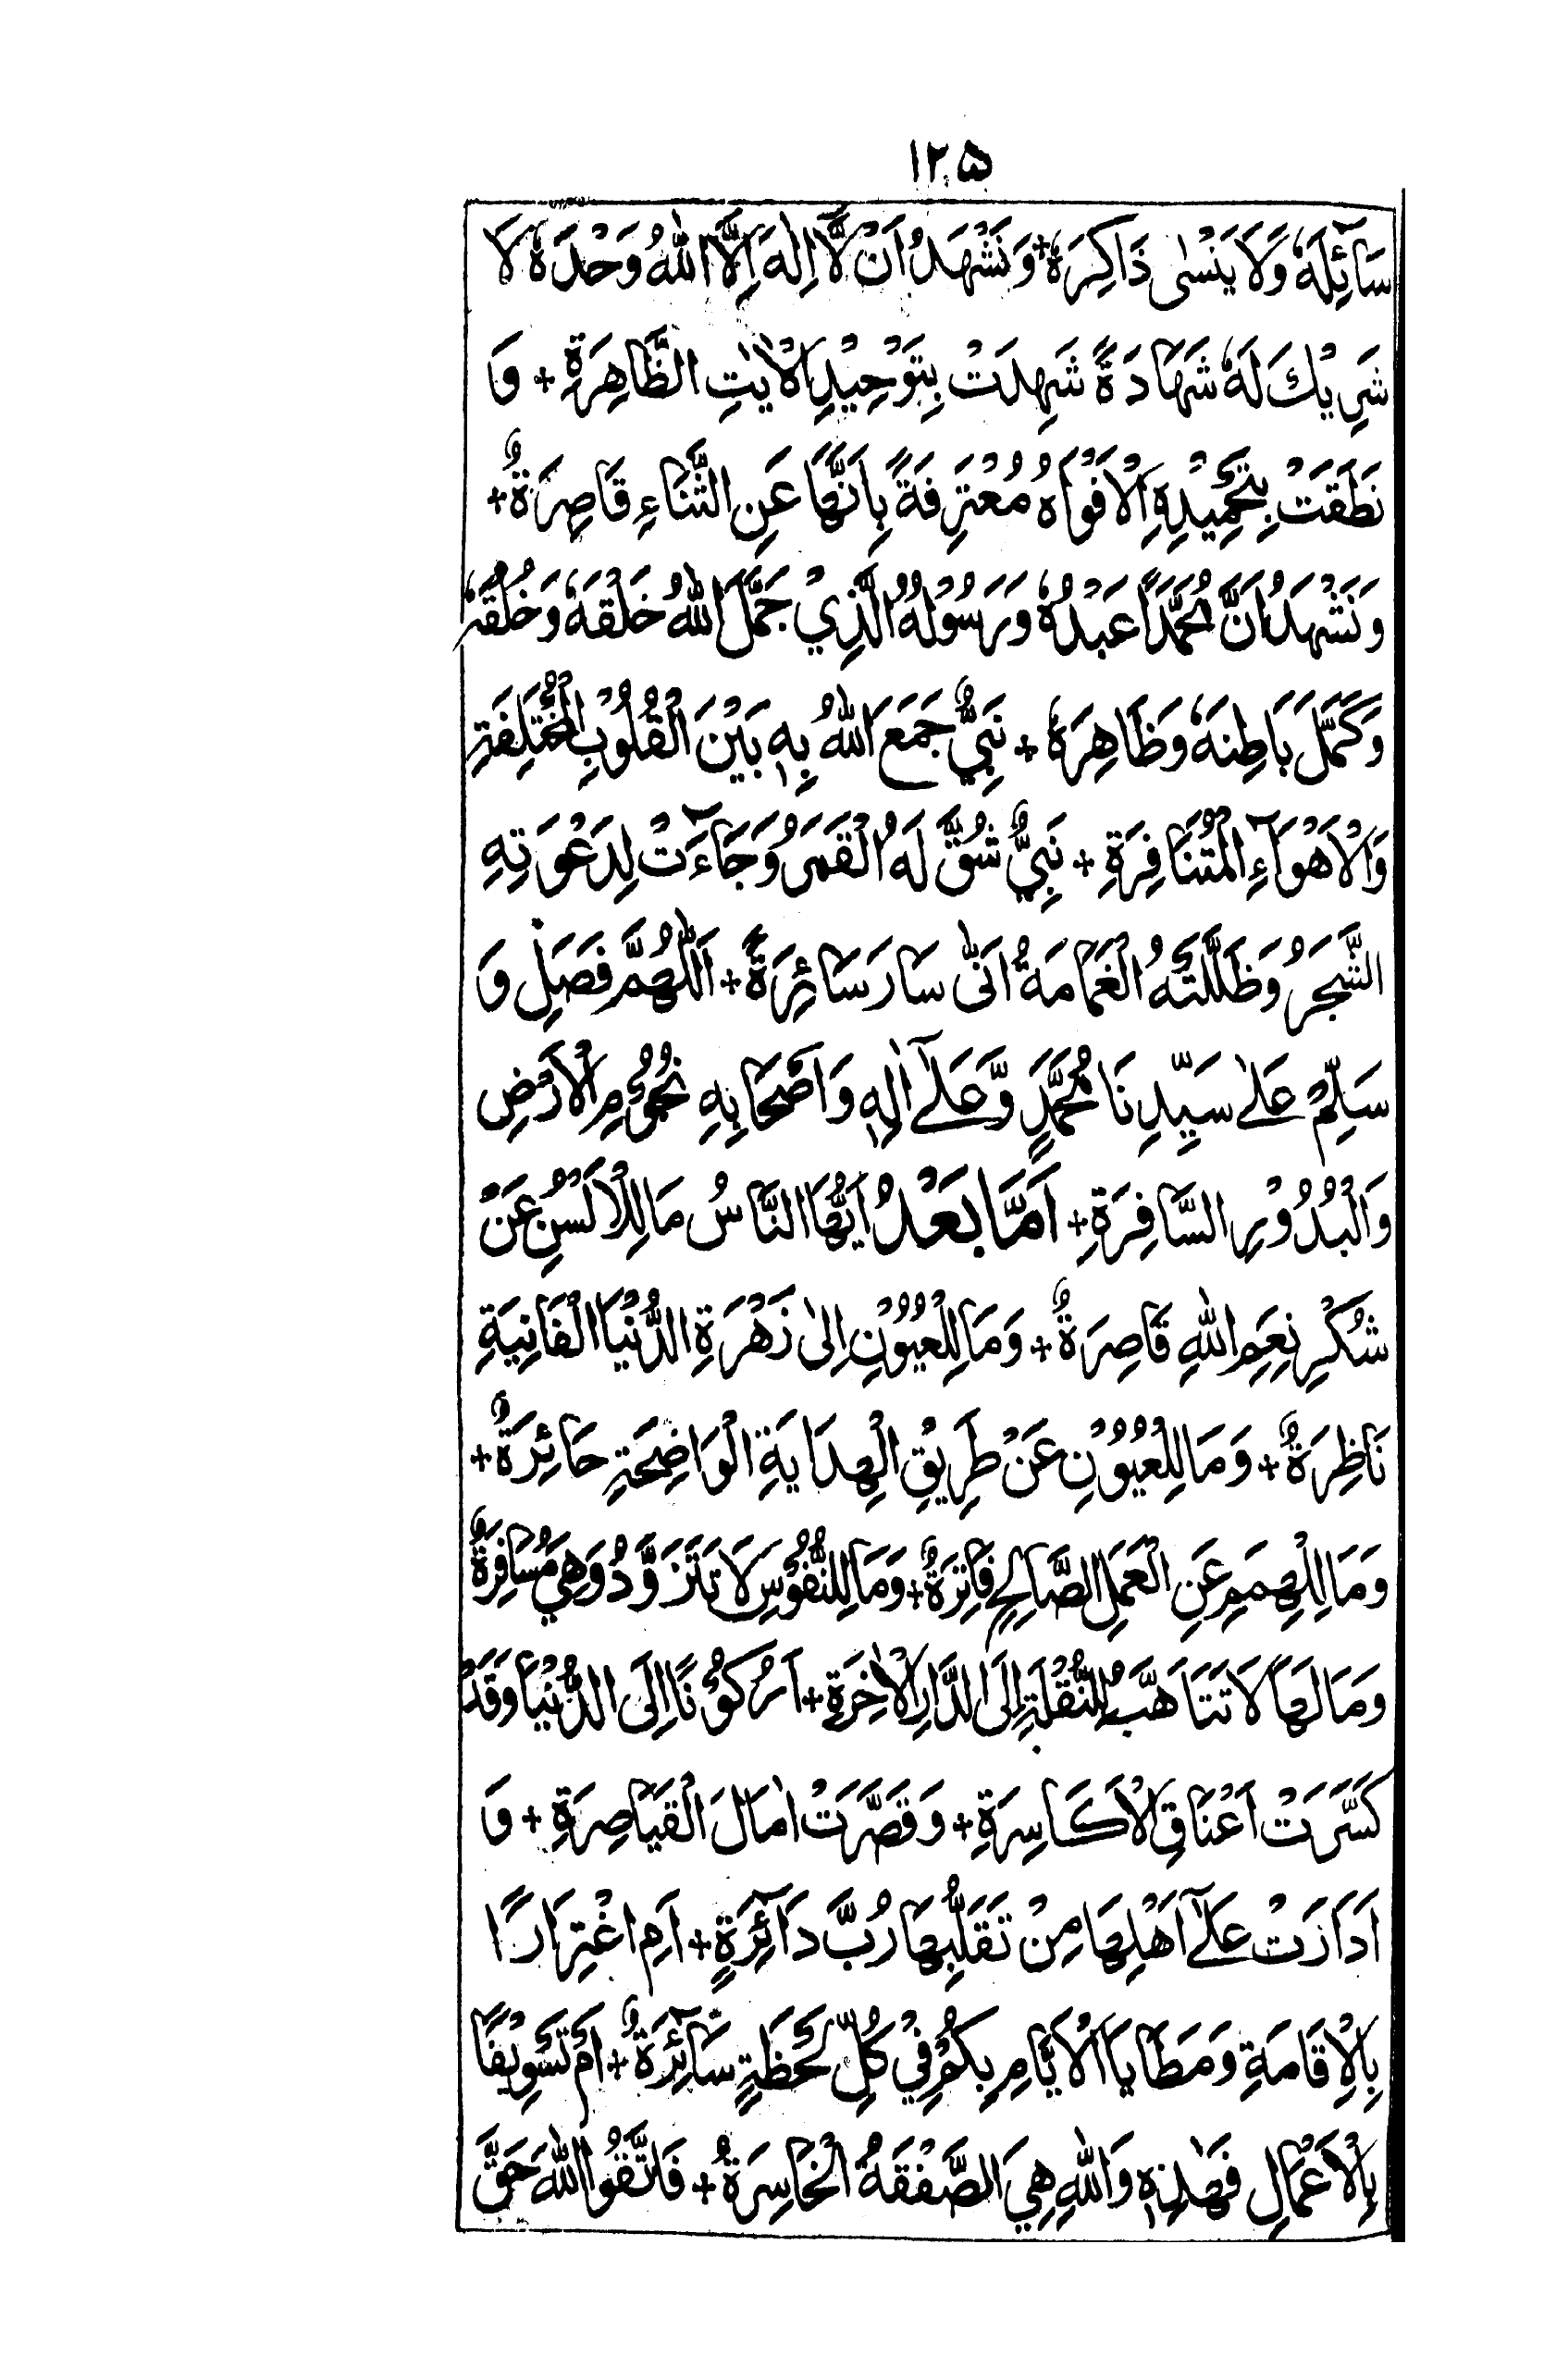 ۱۲۵
سَآئِلَهٗ وَلَا يَنْسٰى ذَاكِرَهٗ + وَنَشْهَدُ اَنْ لَّا اِلٰهَ اِلَّا اللّٰهُ وَحْدَهٗ لَا
شَرِيْكَ لَهٗ شَهَادَةً شَهِدَتْ بِتَوْحِيْدِ الْاٰيٰتِ الظَّاهِرَةِ + وَ
نَطَقَتْ بِتَحْمِيْدِهِ الْاَفْوَاهُ مُعْتَرِفَةً بِاَنَّهَا عَنِ الثَّنَاءِ قَاصِرَةٌ +
وَنَشْهَدُ اَنَّ مُحَمَّدًا عَبْدُهٗ وَرَسُوْلُهُ الَّذِيْ جَمَّلَ اللّٰهُ خَلْقَهٗ وَخُلُقَهٗ
وَكَمَّلَ بَاطِنَهٗ وَظَاهِرَهٗ + نَبِيٌّ جَمَعَ اللّٰهُ بِهٖ بَيْنَ الْقُلُوْبِ الْمُخْتَلِفَةِ
وَالْاَهْوَآءِ الْمُتَنَافِرَةِ + نَبِيٌّ شُقَّ لَهُ الْقَمَرُ وَجَآءَتْ لِدَعْوَتِهِ
الشَّجَرُ وَظَلَّلَتْهُ الْغَمَامَةُ اَنّٰى سَارَ سَائِرَةً + اَللّٰهُمَّ فَصَلِّ وَ
سَلِّمْ عَلٰى سَيِّدِنَا مُحَمَّدٍ وَّعَلٰٓى اٰلِهٖ وَاَصْحَابِهِ نُجُوْمِ الْاَرْضِ
وَالْبُدُوْرِ السَّافِرَةِ + اَمَّا بَعْدُ اَيُّهَا النَّاسُ مَا لِلْاَلْسُنِ عَنْ
شُكْرِ نِعَمِ اللّٰهِ قَاصِرَةٌ + وَمَا لِلْعُيُوْنِ اِلٰى زَهْرَةِ الدُّنْيَا الْفَانِيَةِ
نَاظِرَةٌ + وَمَا لِلْعُيُوْنِ عَنْ طَرِيْقِ الْهِدَايَةِ الْوَاضِحَةِ حَائِرَةٌ +
وَمَا لِلْهِمَمِ عَنِ الْعَمَلِ الصَّالِحِ فَاتِرَةٌ + وَمَا لِلنُّفُوْسِ لَا تَتَزَوَّدُ وَهِيَ مُسَافِرَةٌ
وَمَا لَهَا لَا تَتَاَهَّبُ لِلنُّقْلَةِ اِلَى الدَّارِ الْاٰخِرَةِ + اَرُكُوْنًا اِلَى الدُّنْيَا وَقَدْ
كَسَّرَتْ اَعْنَاقَ الْاَكَاسِرَةِ + وَقَصَّرَتْ اٰمَالَ الْقَيَاصِرَةِ + وَ
اَدَارَتْ عَلٰٓى اَهْلِهَا مِنْ تَقَلُّبِهَا رُبَّ دَآئِرَةٍ + اَمِ اغْتِرَارًا
بِالْاِقَامَةِ وَمَطَايَا الْاَيَّامِ بِكُمْ فِيْ كُلِّ لَحْظَةٍ سَآئِرَةٌ + اَمْ تَسْوِيْفًا
بِالْاَعْمَالِ فَهٰذِهٖ وَاللّٰهِ هِيَ الصَّفْقَةُ الْخَاسِرَةُ + فَاتَّقُوا اللّٰهَ حَقَّ